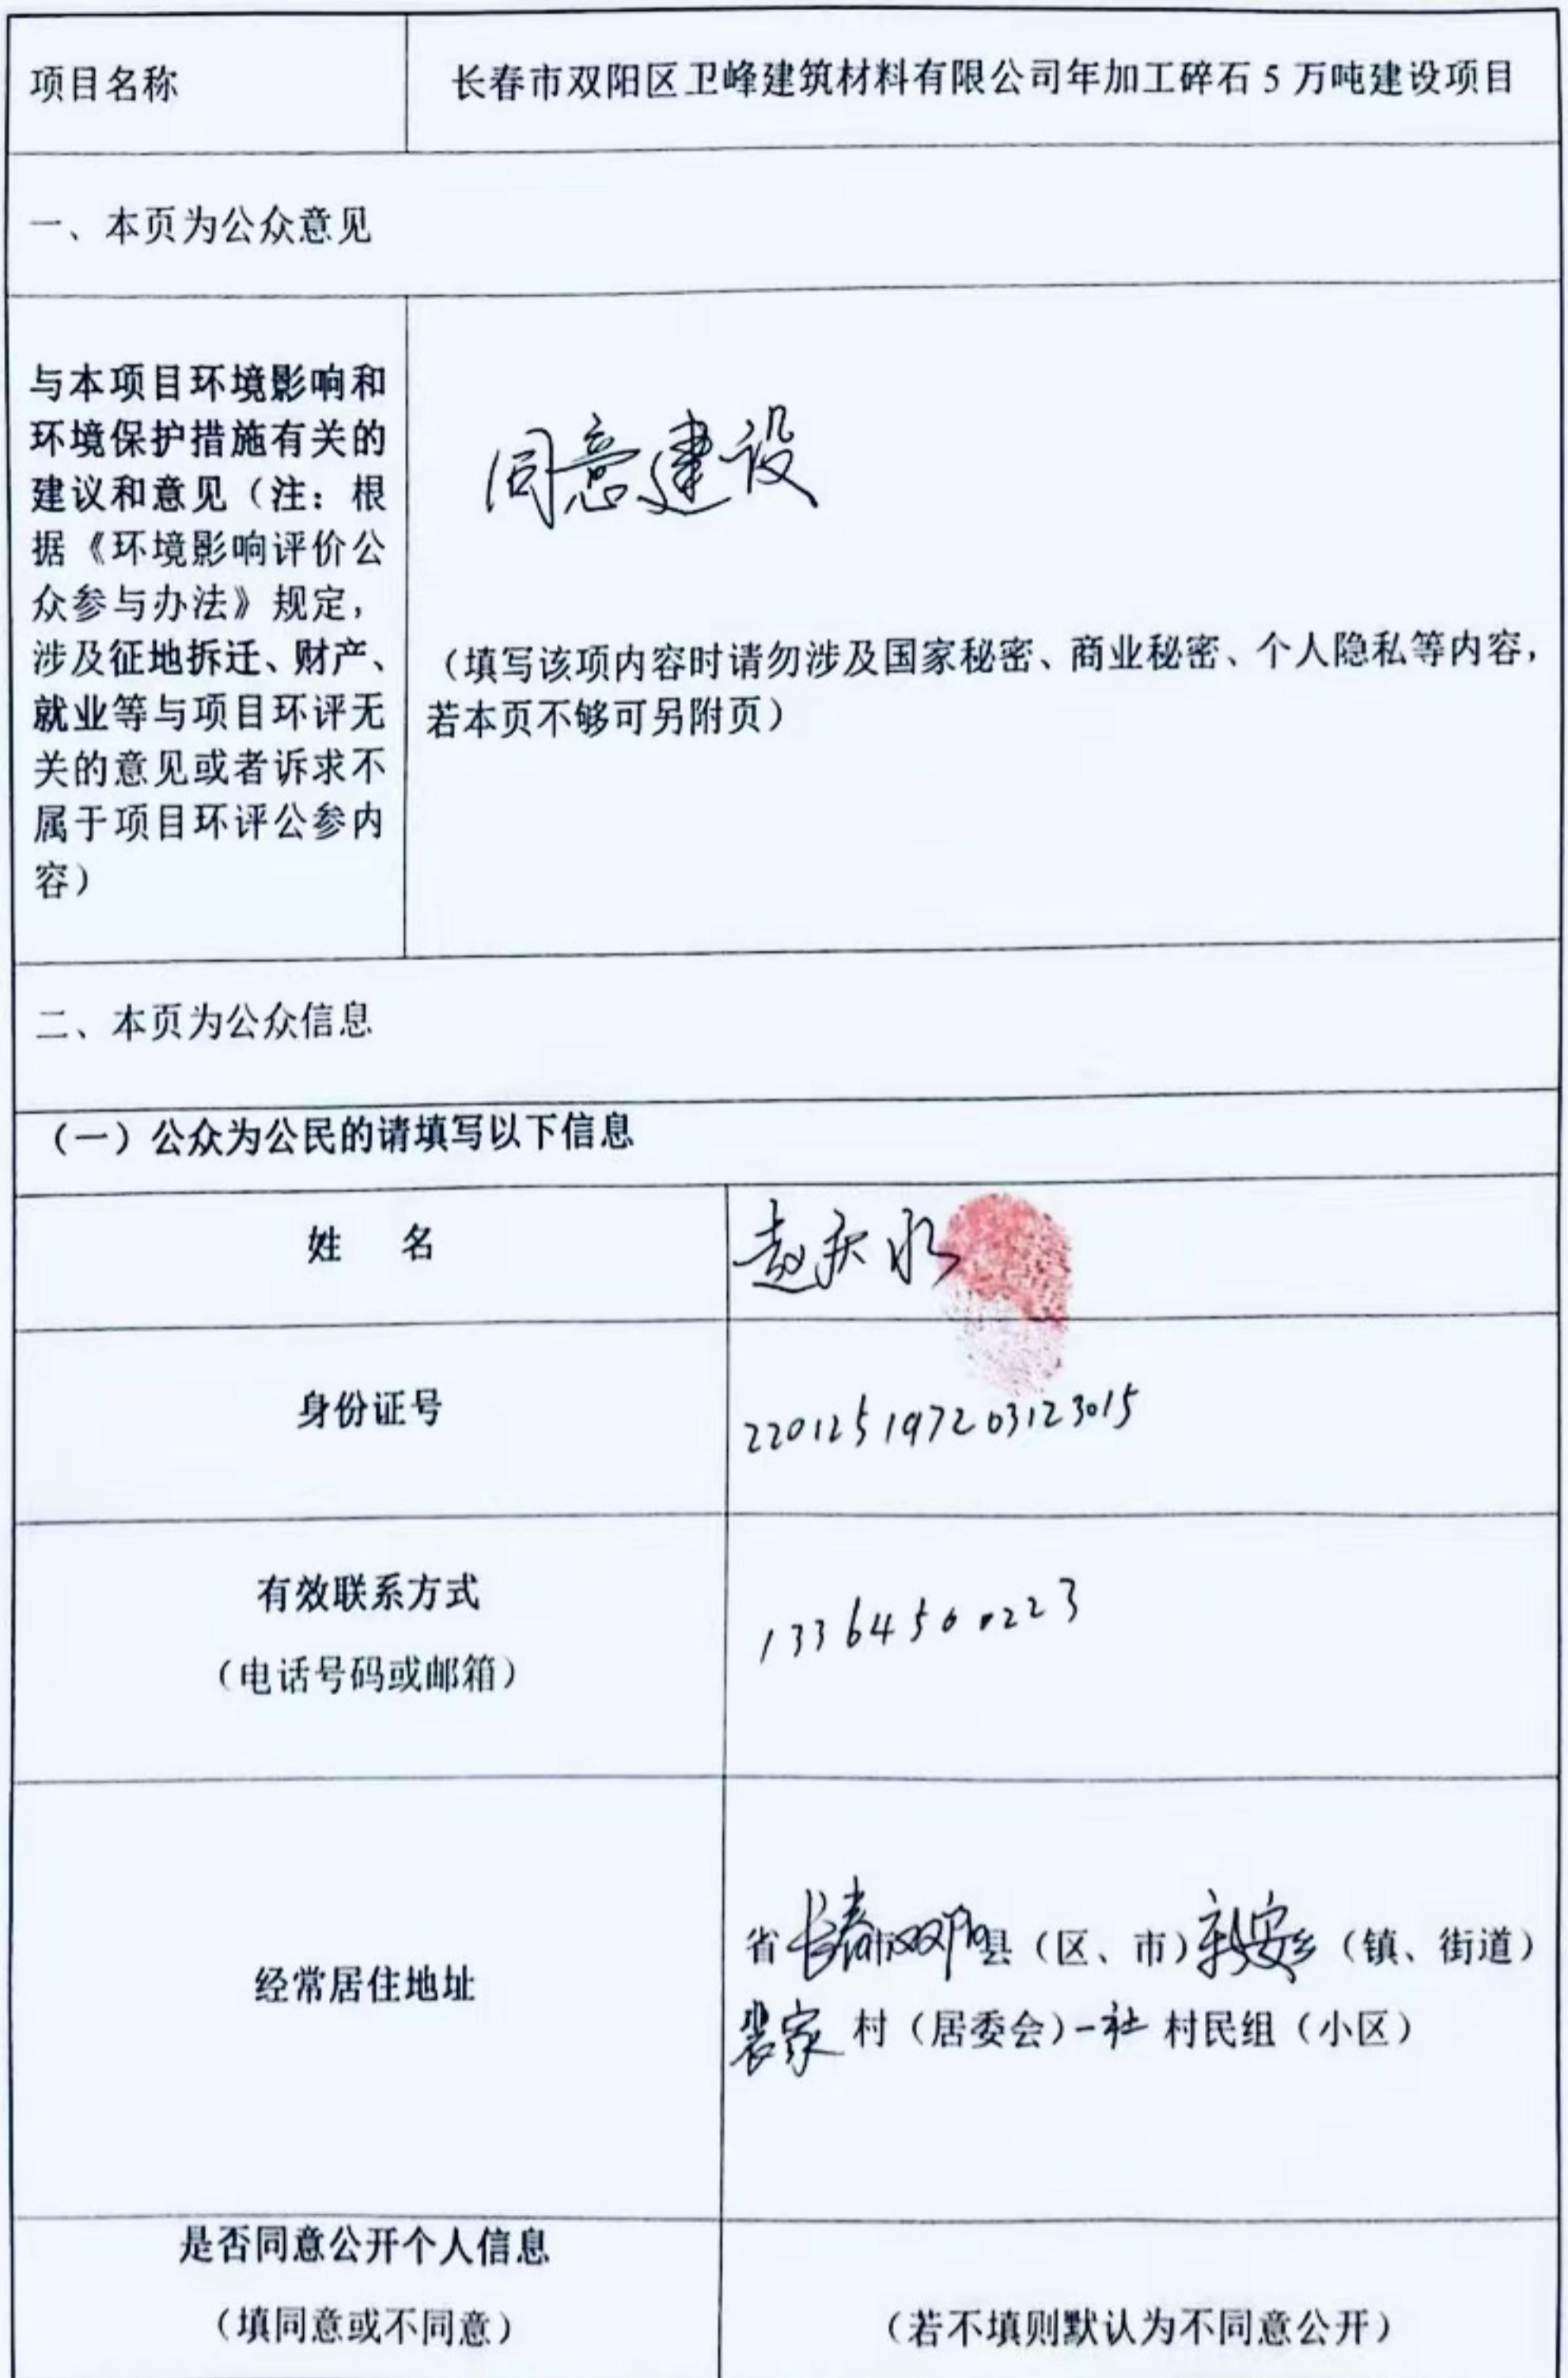 项目名称
长春市双阳区卫峰建筑材料有限公司年加工碎石5万吨建设项目
一、本页为公众意见
与本项目环境影响和
环境保护措施有关的
建议和意见（注：根
据《环境影响评价公
众参与办法》规定，
涉及征地拆迁、财产、
就业等与项目环评无
关的意见或者诉求不
属于项目环评公参内
容）
同意建设
（填写该项内容时请勿涉及国家秘密、商业秘密、个人隐私等内容，
若本页不够可另附页）
二、本页为公众信息
（一）公众为公民的请填写以下信息
姓 名
赵庆水
身份证号
220125197203123015
有效联系方式
（电话号码或邮箱）
13364500223
经常居住地址
省长春市双阳县（区、市）新安乡（镇、街道）
裴家村（居委会）一社村民组（小区）
是否同意公开个人信息
（填同意或不同意）
（若不填则默认为不同意公开）